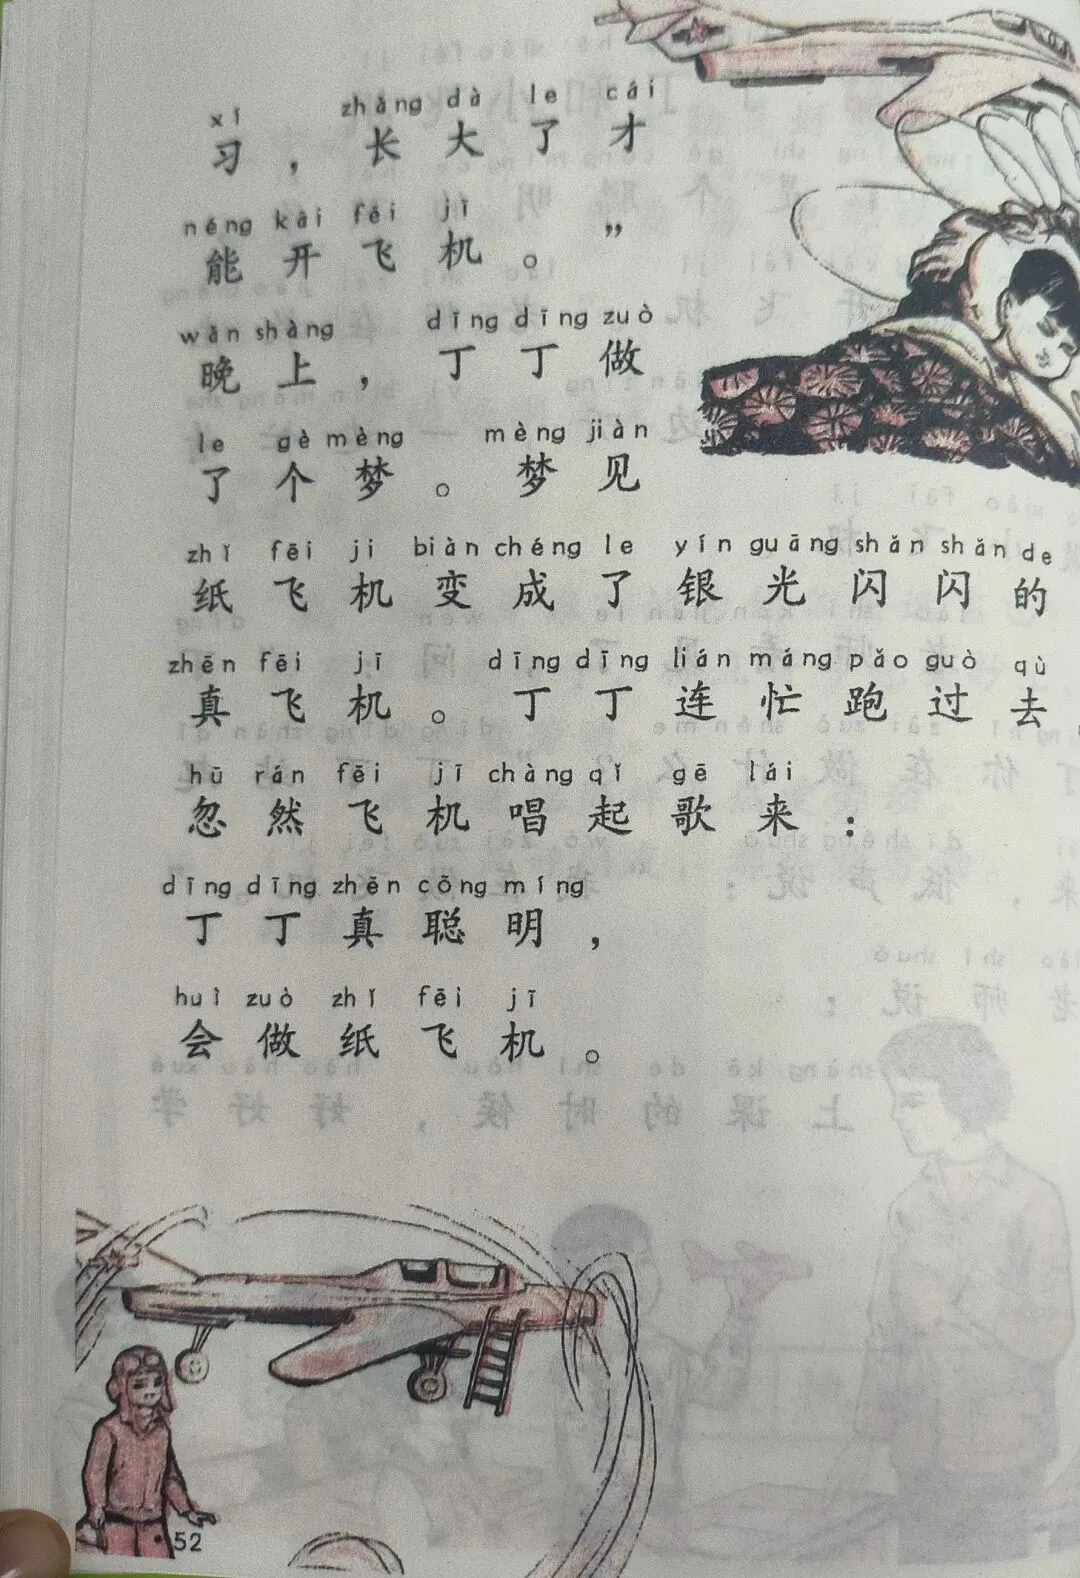 xí zhǎng dà le cái
习，长大了才
néng kāi fēi jī
能开飞机。”
wǎn shàng dīng dīng zuò
晚上，丁丁做
le gè mèng mèng jiàn
了个梦。梦见
zhǐ fēi jī biàn chéng le yín guāng shǎn shǎn de
纸飞机变成了银光闪闪的
zhēn fēi jī dīng dīng lián máng pǎo guò qù
真飞机。丁丁连忙跑过去，
hū rán fēi jī chàng qǐ gē lái
忽然飞机唱起歌来：
dīng dīng zhēn cōng míng
丁丁真聪明，
huì zuò zhǐ fēi jī
会做纸飞机。
52